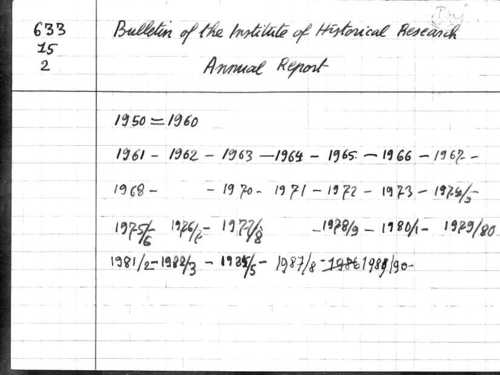 633 Bulletin of the Institute of Historical Research
15
2 Annual Report
1950 = 1960
1961 - 1962 - 1963 - 1964 - 1965 - 1966 - 1967 -
1968 - - 1970 - 1971 - 1972 - 1973 - 1974/5
1975/6 1976/7 - 1977/8 - 1978/9 - 1980/1 - 1979/80
1981/2 - 1982/3 - 1984/5 - 1987/8 - 1989/90 -